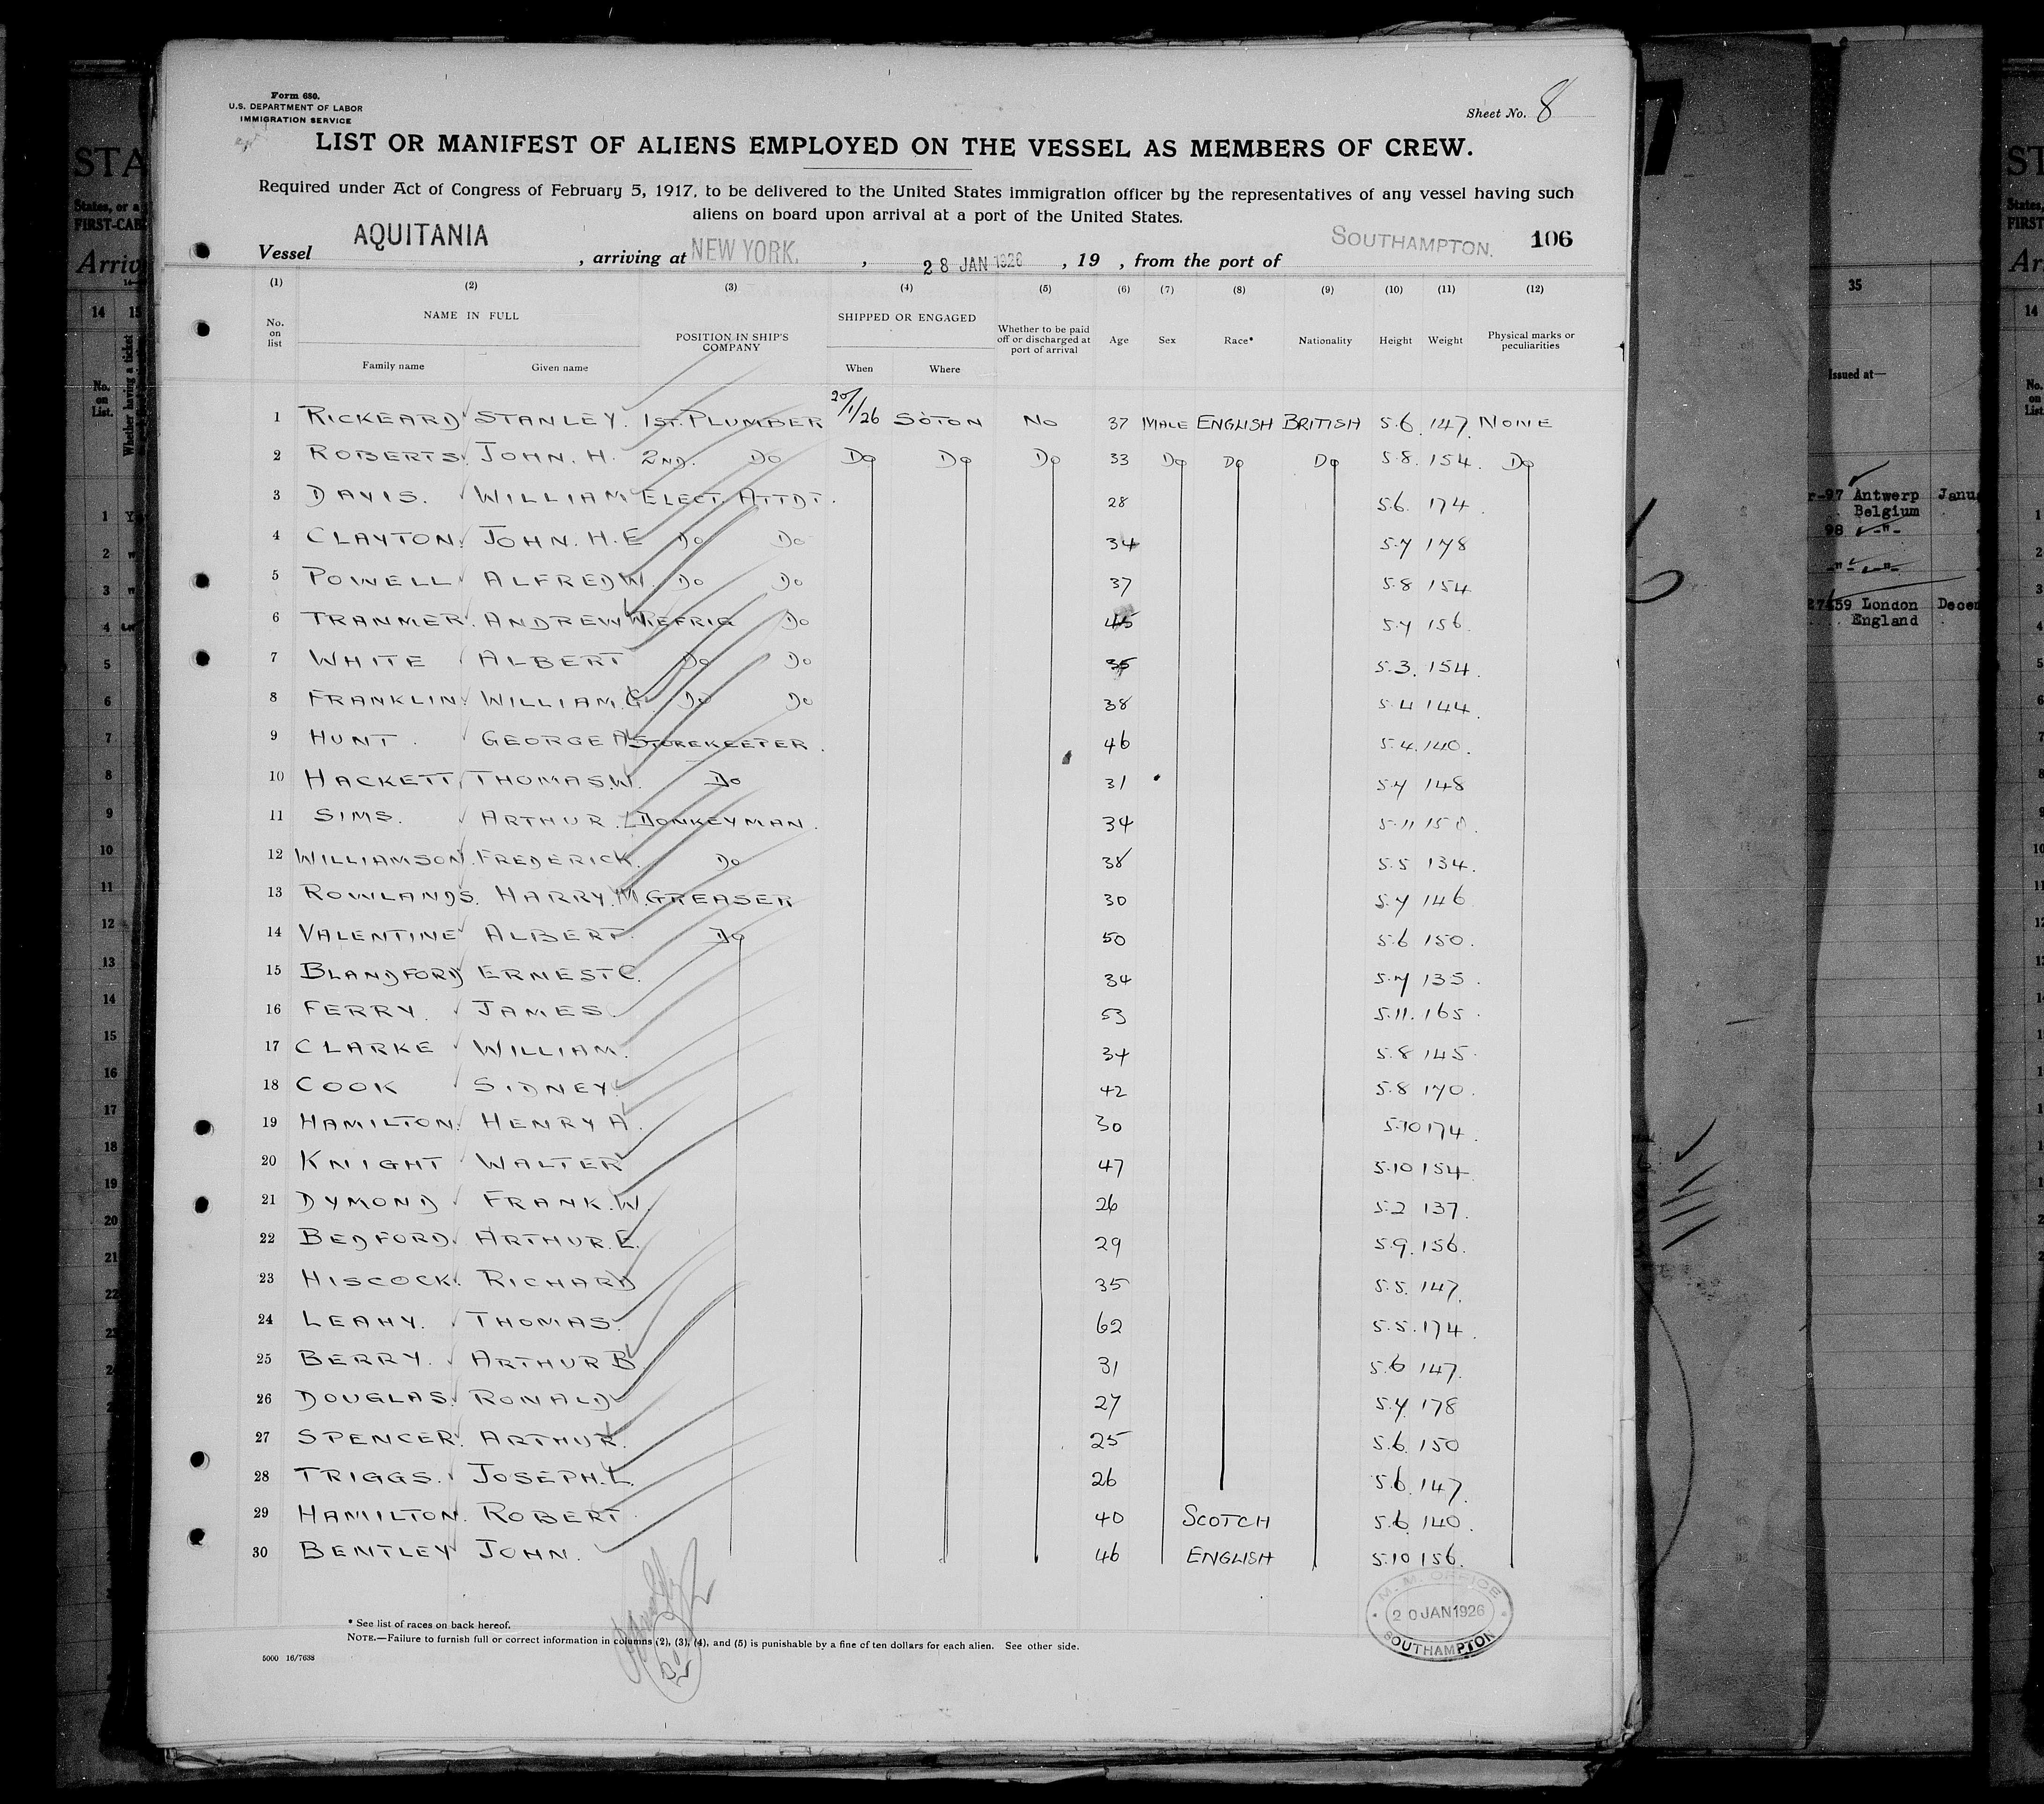 Form 680.
U.S. DEPARTMENT OF LABOR
IMMIGRATION SERVICE
Sheet No. 8
LIST OR MANIFEST OF ALIENS EMPLOYED ON THE VESSEL AS MEMBERS OF CREW.
Required under Act of Congress of February 5, 1917, to be delivered to the United States immigration officer by the representatives of any vessel having such
aliens on board upon arrival at a port of the United States.
Vessel AQUITANIA, arriving at NEW YORK, 28 JAN 1926, 19 , from the port of SOUTHAMPTON. 106
(1) (2) (3) (4) (5) (6) (7) (8) (9) (10) (11) (12)
No. on list NAME IN FULL POSITION IN SHIP'S COMPANY SHIPPED OR ENGAGED Whether to be paid off or discharged at port of arrival Age Sex Race* Nationality Height Weight Physical marks or peculiarities
Family name Given name When Where
1 RICKEARD STANLEY. 1ST. PLUMBER 20/1/26 SOTON NO 37 MALE ENGLISH BRITISH 5.6. 147. NONE
2 ROBERTS JOHN. H. 2ND. DO DO DO DO 33 DO DO DO 5.8. 154. DO
3 DAVIS. WILLIAM ELECT. ATTDT. 28 5.6. 174.
4 CLAYTON. JOHN. H. E DO DO 34 5.7 178
5 POWELL ALFRED W. DO DO 37 5.8 154
6 TRANMER. ANDREW W REFRIG DO 45 5.7 156.
7 WHITE ALBERT DO DO 35 5.3. 154.
8 FRANKLIN. WILLIAM. G. DO DO 38 5.4 144.
9 HUNT. GEORGE A STOREKEEPER. 46 5.4. 140.
10 HACKETT THOMAS. W. DO 31 5.7 148
11 SIMS. ARTHUR. L DONKEYMAN. 34 5.11 150.
12 WILLIAMSON. FREDERICK. DO 38 5.5 134.
13 ROWLANDS. HARRY. M. GREASER 30 5.7 146.
14 VALENTINE ALBERT. DO 50 5.6 150.
15 BLANDFORD ERNEST C. 34 5.7 135.
16 FERRY. JAMES. 53 5.11. 165.
17 CLARKE WILLIAM. 34 5.8 145.
18 COOK SIDNEY. 42 5.8 170.
19 HAMILTON. HENRY A. 30 5.10 174.
20 KNIGHT WALTER 47 5.10 154.
21 DYMOND FRANK. W. 26 5.2 137.
22 BEDFORD. ARTHUR. E. 29 5.9. 156.
23 HISCOCK. RICHARD 35 5.5. 147.
24 LEAHY. THOMAS. 62 5.5. 174.
25 BERRY. ARTHUR B. 31 5.6 147.
26 DOUGLAS. RONALD 27 5.7. 178
27 SPENCER. ARTHUR. 25 5.6. 150
28 TRIGGS. JOSEPH. L. 26 5.6. 147.
29 HAMILTON. ROBERT 40 SCOTCH 5.6. 140.
30 BENTLEY JOHN. 46 ENGLISH 5.10 156.
M. M. OFFICE
20 JAN 1926
SOUTHAMPTON
* See list of races on back hereof.
NOTE.—Failure to furnish full or correct information in columns (2), (3), (4), and (5) is punishable by a fine of ten dollars for each alien. See other side.
5000 16/7638
35
Issued at—
Antwerp
Belgium
98 -"-
-"-
London
England